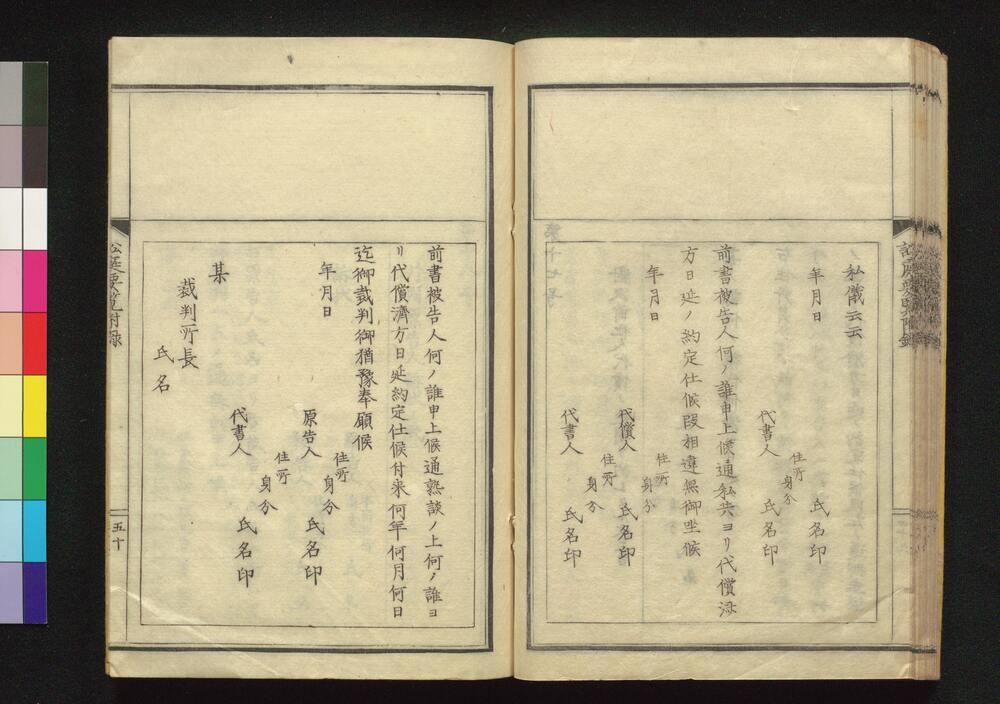 私儀云云
年月日
氏名印
住所
身分
代書人
氏名印
前書被告人何ノ誰申上候通私共ヨリ代償済
方日延ノ約定仕候段相違無御坐候
年月日
住所
身分
代償人
氏名印
住所
身分
代書人
氏名印
前書被告人何ノ誰申上候通熟談ノ上何ノ誰ヨ
リ代償済方日延約定仕候付来何年何月何日
迄御裁判御猶豫奉願候
年月日
住所
身分
原告人
氏名印
住所
身分
代書人
氏名印
某
裁判所長
氏名
訟庭要覧附録
五十